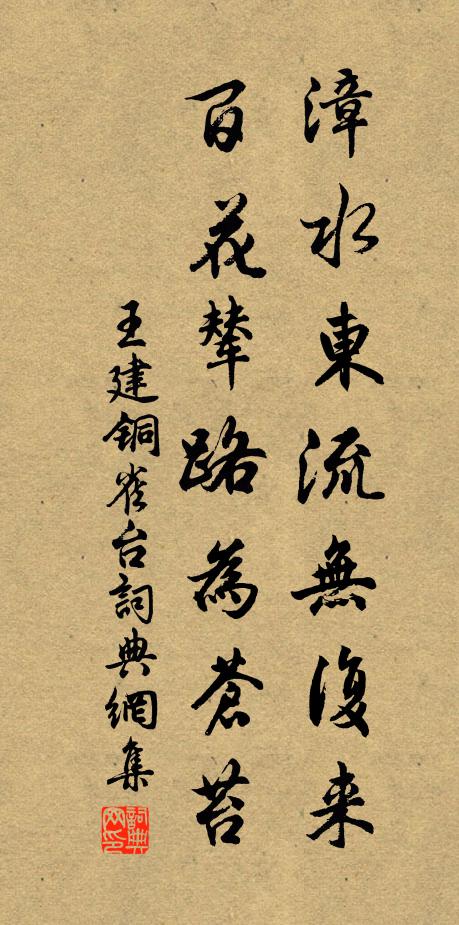 漳水東流無復来
百花輦路為蒼苔
王建銅雀台詞典網集
詞典网印